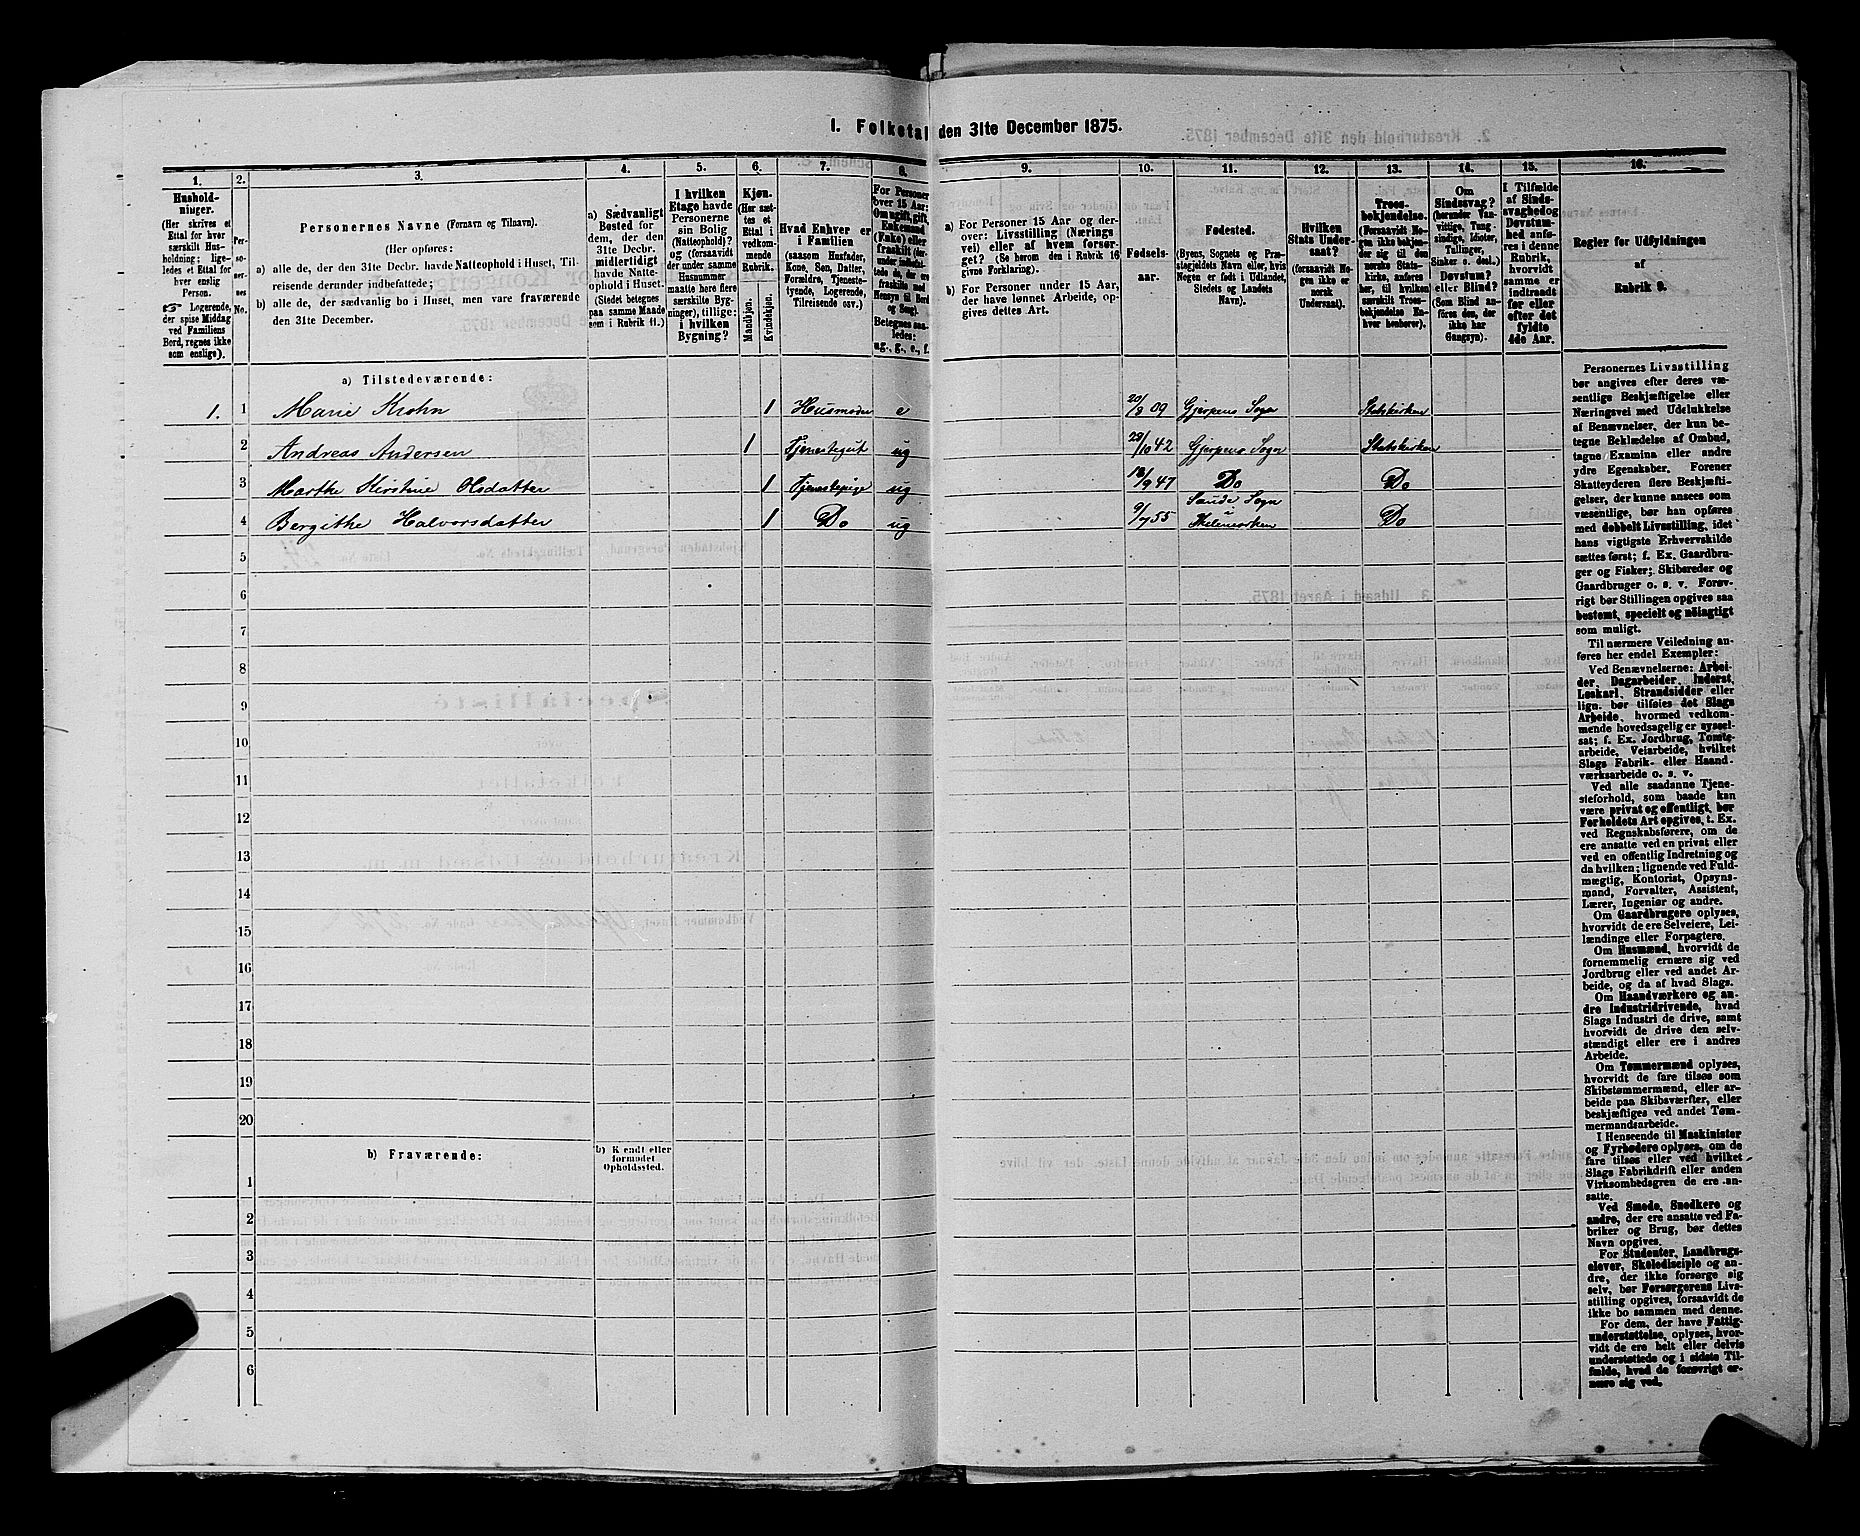 I. Folketal den 31te December 1875.
1.
Hushold-
ninger.
(Her skrives et
Ettal for hver
særskilt Hus-
holdning; lige-
ledes et Ettal for
hver enslig
Person.
☞ Logerende,
der spise Middag
ved Familiens
Bord, regnes ikke
som enslige).
2.
Per-
soner-
nes
No.
3.
Personernes Navne (Fornavn og Tilnavn).
(Her opføres:
a) alle de, der den 31te Decbr. havde Natteophold i Huset, Til-
reisende derunder indbefattede;
b) alle de, der sædvanlig bo i Huset, men vare fraværende
den 31te December.
4.
a) Sædvanligt
Bosted for
dem, der den
31te Decbr.
midlertidigt
havde Natte-
ophold i Huset.
(Stedet betegnes
paa samme Maade
som i Rubrik 11.)
5.
I hvilken
Etage havde
Personerne
sin Bolig
(Natteophold)?
og (forsaavidt
der under samme
Husnummer
maatte høre flere
særskilte Byg-
ninger), tillige:
i hvilken
Bygning?
6.
Kjøn.
(Her sæt-
tes et
Ettal i
vedkom-
mende
Rubrik.)
Mandkjøn.
Kvindekjøn.
7.
Hvad Enhver er
i Familien
(saasom Husfader,
Kone, Søn, Datter,
Forældre, Tjeneste-
tyende, Logerende,
Tilreisende osv.)
8.
For Personer
over 15 Aar:
Om ugift, gift,
Enkemand
(Enke) eller
fraskilt (der-
under indbefat-
tede de, der ere
fraskilte med
Hensyn til Bord
og Seng).
Betegnes saa-
ledes:
ug., g., e., f.
9.
a) For Personer 15 Aar og der-
over: Livsstilling (Nærings
vei) eller af hvem forsør-
get? (Se herom den i Rubrik 16
givne Forklaring).
b) For Personer under 15 Aar,
der have lønnet Arbeide, op-
gives dettes Art.
10.
Fødsels-
aar.
11.
Fødested.
(Byens, Sognets og Præ-
stegjeldets Navn eller, hvis
Nogen er født i Udlandet,
Stedets og Landets
Navn).
12.
Hvilken
Stats Under-
saat?
(forsaavidt No-
gen ikke er
norsk
Undersaat).
13.
Troes-
bekjendelse.
(Forsaavidt No-
gen ikke bekjen-
der sig til den
norske Stats-
kirke, anføres
her, til hvilken
særskilt Troes-
bekjendelse En-
hver henhører).
14.
Om
Sindssvag?
(herunder Van-
vittige, Tung-
sindige, Idioter,
Tullinger,
Sinker o. desl.)
Døvstum?
eller Blind?
(Som Blind an-
føres den, der
ikke har
Gangsyn).
15.
I Tilfælde
af Sinds-
svaghed og
Døvstum-
hed anføres
i denne
Rubrik,
hvorvidt
samme er
indtraadt
før eller
efter det
fyldte
4de Aar.
16.
Regler for Udfyldningen
af
Rubrik 9.
a) Tilstedeværende:
1. 1 Marie Krohn 1 Husmoder e 20/8 09 Gjerpens Sogn Statskirken
2 Andreas Andersen 1 Tjenestegut ug 29/10 42 Gjerpens Sogn Statskirken
3 Marthe Kirstine Olsdatter 1 Tjenestepige ug 18/9 47 Do Do
4 Bergithe Halvorsdatter 1 Do ug 9/7 55 Saude Sogn i Thelemarken Do
5
6
7
8
9
10
11
12
13
14
15
16
17
18
19
20
b) Fraværende:
b) Kjendt eller
formodet
Opholdssted.
1
2
3
4
5
6
Personernes Livsstilling
bør angives efter deres væ-
sentlige Beskjæftigelse eller
Næringsvei med Udelukkelse
af Benævnelser, der kun be-
tegne Beklædelse af Ombud,
tagne Examina eller andre
ydre Egenskaber. Forener
Skatteyderen flere Beskjæfti-
gelser, der kunne ansees som
væsentlige, bør han opføres
med dobbelt Livsstilling, idet
hans vigtigste Erhvervskilde
sættes først; f. Ex. Gaardbru-
ger og Fisker; Skibsreder og
Gaardbruger o. s. v. Forøv-
rigt bør Stillingen opgives saa
bestemt, specielt og nøiagtigt
som muligt.
Til nærmere Veiledning an-
føres her endel Exempler:
Ved Benævnelserne: Arbei-
der, Dagarbeider, Inderst,
Løskarl, Strandsidder eller
lign. bør tilføies det Slags
Arbeide, hvormed vedkom-
mende hovedsagelig er syssel-
sat; f. Ex. Jordbrug, Tomte-
arbeide, Veiarbeide, hvilket
Slags Fabrik- eller Haand-
værksarbeide o. s. v.
Ved alle saadanne Tjene-
steforhold, som baade kan
være privat og offentligt, bør
Forholdets Art opgives, t. Ex.
ved Regnskabsførere, om de
ere ansatte ved en privat eller
ved en offentlig Indretning og
da hvilken; lignende ved Fuld-
mægtig, Kontorist, Opsyns-
mand, Forvalter, Assistent,
Lærer, Ingeniør og andre.
Om Gaardbrugere oplyses,
hvorvidt de ere Selveiere, Lei-
lændinge eller Forpagtere.
Om Husmænd, hvorvidt de
fornemmelig ernære sig ved
Jordbrug eller ved andet Ar-
beide, og da af hvad Slags.
Om Haandværkere og an-
dre Industridrivende, hvad
Slags Industri de drive, samt
hvorvidt de drive den selv-
stændigt eller ere i andres
Arbeide.
Om Tømmermænd oplyses,
hvorvidt de fare tilsøs som
Skibstømmermænd, eller ar-
beide paa Skibsværfter, eller
beskjæftiges ved andet Tøm-
mermandsarbeide.
I Henseende til Maskinister
og Fyrbødere oplyses, om de
fare tilsøs eller ved hvilket
Slags Fabrikdrift eller anden
Virksomhedsgren de ere an-
satte.
Ved Smede, Snedkere og
andre, der ere ansatte ved Fa-
briker og Brug, bør dettes
Navn opgives.
For Studenter, Landbrugs-
elever, Skoledisciple og an-
dre, der ikke forsørge sig
selv, bør Forsørgerens Livs-
stilling opgives, forsaavidt de
ikke bo sammen med denne.
For dem, der have Fattig-
understøttelse, oplyses, hvor-
vidt de ere helt eller delvis
understøttede og i sidste Til-
fælde, hvad de forøvrigt er-
nære sig ved.